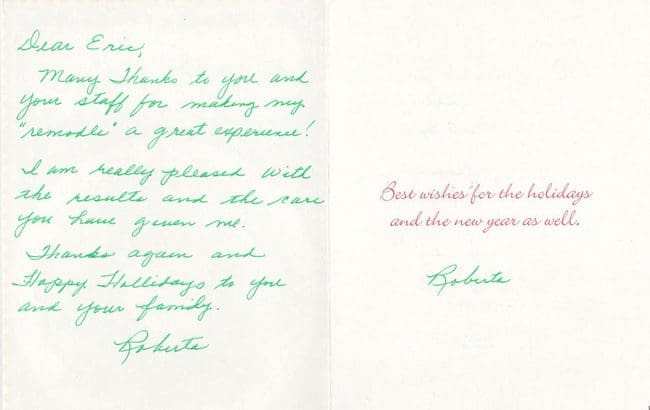 Dear Eric,
Many Thanks to you and
your staff for making my
"remodle" a great experience!
I am really pleased with
the results and the care
you have given me.
Thanks again and
Happy Hollidays to you
and your family.
Roberta
Best wishes for the holidays
and the new year as well.
Roberta